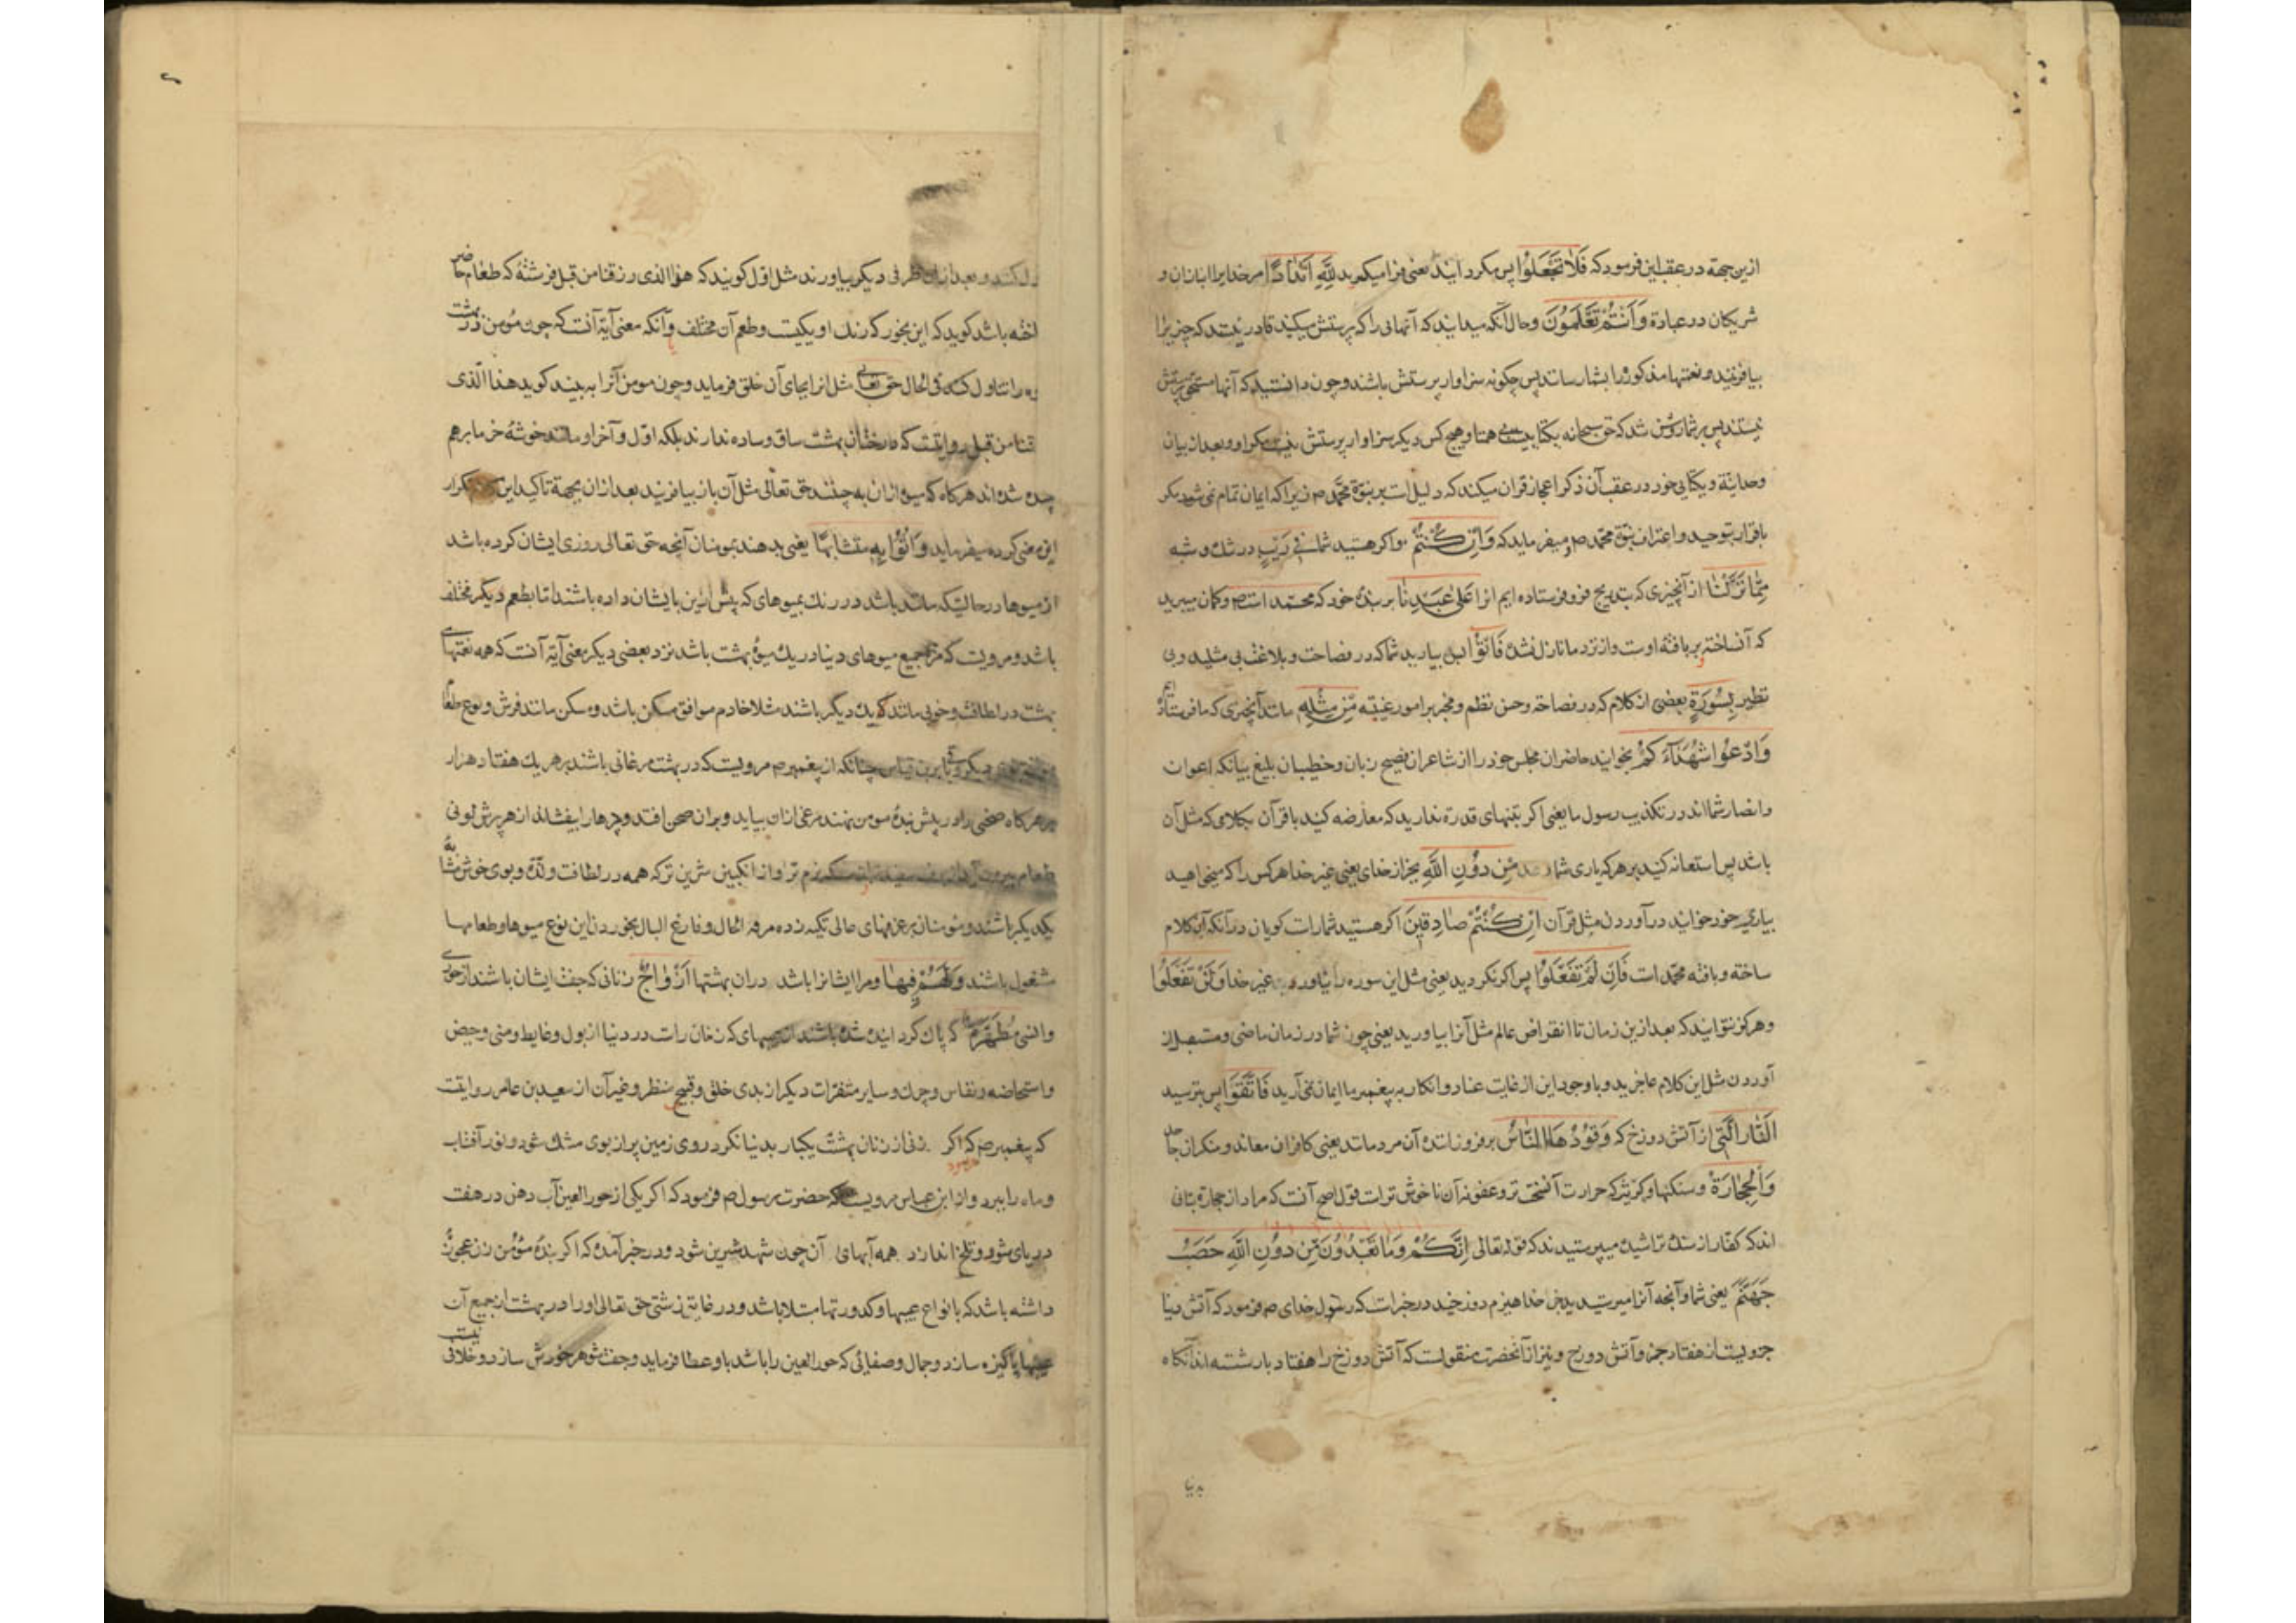 ازین جهة در عقب این فرمود که فَلَا تَجْعَلُوا پس مکردانید یعنی فرا میکیرید لِلّٰهِ اَنْدَادًا مر خدایرا انبازان و
شریکان در عبادة وَاَنْتُمْ تَعْلَمُونَ وحال آنکه میدانید که آنهائی را که پرستش میکنید قادر نیستند که چیزیرا
بیافرینند و نعتهای مذکوره را بشما رسانند پس چکونه سزاوار پرستش باشند و چون دانستید که آنها مستحق پرستش
نیستند پس بر شما روشن شد که حق سبحانه یکتا بیهمتا و هیچ کس دیکر سزاوار پرستش نیست مکر او و بعد از بیان
وحدانیّة و یکتایی خود در عقب آن ذکر اعجاز قران میکند که دلیل است بر نبوّة محمّد ص زیرا که ایمان تمام نمی شود مکر
باقرار بتوحید و اعتراف بنبوّة محمّد ص و میفرماید که وَاِنْ كُنْتُمْ واکر هستید شما فِی رَیْبٍ در شک و شبه
مِمَّا نَزَّلْنَا از آنچیزی که بتدریج فرو فرستاده ایم انرا عَلٰی عَبْدِنَا بر بندهٔ خود که محمّد است ص وکمان میبرید
که آن ساخته و بر بافتهٔ اوست و از نزد ما نازل نشده فَاْتُوا پس بیارید شما که در فصاحت و بلاغت بی مثلید و بی
نظیر بِسُورَةٍ بعضی از کلام که در فصاحة وحسن نظم ومخبر بر امور غیبیّه مِنْ مِثْلِهِ مانند آنچیزی که ما فرستاده ایم
وَادْعُوا شُهَدَآءَ كُمْ بخوانید حاضران مجلس خود را از شاعران فصیح زبان وخطیبان بلیغ بیانکه اعوان
وانصار شما اند در تکذیب رسول ما یعنی اکر بتنهای قدرة ندارید که معارضه کنید با قرآن بکلامی که مثل آن
باشد پس استعانه کنید بر هر که یاری شما دهد مِنْ دُوْنِ اللّٰهِ بجز از خدای یعنی غیر خدا هر کس را که میخواهید
بیاری خود خوانید در آوردن مثل قرآن اِنْ كُنْتُمْ صَادِقِینَ اکر هستید شما راست کویان در آنکه این کلام
ساخته و بافته محمّد است فَاِنْ لَمْ تَفْعَلُوا پس اکر نکردید یعنی مثل این سوره را نیاوردید غیر خدا وَلَنْ تَفْعَلُوا
وهرکز نتوانید که بعد ازین زمان تا انقراض عالم مثل آنرا بیاورید یعنی چون شما در زمان ماضی و مستقبل از
آوردن مثل این کلام عاجزید و با وجود این از غایت عناد و انکار به پیغمبر ما ایمان نمی آرید فَاتَّقُوا پس بترسید
النَّارَ الَّتِی از آتش دوزخ که وَقُودُهَا النَّاسُ بر فروزانندهٔ آن مردمانند یعنی کافران معاند ومنکران جاحد
وَالْحِجَارَةُ وسنکها وکبریت که حرارت آن سخت تر وعفونة آن ناخوش تر است قول اصح آنست که مراد از حجارة بتانی
اند که کفّار از سنک تراشیده میپرستیدند که قوله تعالی اِنَّكُمْ وَمَا تَعْبُدُوْنَ مِنْ دُوْنِ اللّٰهِ حَصَبُ
جَهَنَّمَ یعنی شما و آنچه آنرا میپرستید بجز خدا هیزم دوزخید در خبر است که رسول خدای ص فرمود که آتش دنیا
جزویست از هفتاد جزو آتش دوزخ و نیز از آنحضرت منقولست که آتش دوزخ را هفتاد بار شسته اند آنکاه
بدنیا
کنند و بعد از ان ظرفی دیکر بیاورند مثل اول کویند که هذا الذی رزقنا من قبل فرشتهٔ که طعام حاضر
باشد کوید که این بخور که رنک او یکیست وطعم آن مختلف و یا آنکه معنی آیة آنست که چون مؤمن در بهشت
را تناول کند فی الحال حق تعالی مثل انرا بجای آن خلق فرماید وچون مومن آنرا به بیند کوید هذا الّذی
من قبل روایتست که درختان بهشت ساق وساده ندارند بلکه اوّل و آخر او مانند خوشهٔ خرما برهم
چیده شده اند هرکاه که میوهٔ از ان به چینند حق تعالی مثل آن باز بیافریند بعد از ان بجهة تاکید این تکرار
این معنی کرده میفرماید وَاُتُوْا بِهِ مُتَشَابِهًا یعنی بدهند بمومنان آنچه حق تعالی روزی ایشان کرده باشد
از میوها در حالتیکه مانند باشد در رنک بمیوهای که پیش ازین بایشان داده باشند اما بطعم دیکر مختلف
باشد و مرویست که مزهٔ جمیع میوهای دنیا در یک میوهٔ بهشت باشد نزد بعضی دیکر معنی آیة آنست که همه نعمتهای
بهشت در لطافت و خوبی مانند یک دیکر باشند مثلا خادم موافق مسکن باشد ومسکن مانند فرش و نوع طعام
دیکر و برین قیاس چنانکه از پیغمبر ص مرویست که در بهشت مرغانی باشند بر هر یک هفتاد هزار
پر هرکاه صحنی را در پیش بندهٔ مومن نهند مرغی ازان بیاید و بران صحن افتد و پرها را بیفشاند از هر پرش لونی
طعام بیرون آید از برف سفیدتر از مسکه نرم تر و از انکبین شیرین تر که همه در لطافت و لذّة و بوی خوش مشابهٔ
یکدیکر باشند و مومنان بر غرفهای عالی تکیه زده مرفه الحال و فارغ البال بخوردن این نوع میوها و طعامها
مشغول باشند وَلَهُمْ فِیهَا ومر ایشانرا باشد دران بهشتها اَزْوَاجٌ زنانی که جفت ایشان باشند از حوری
وانسی مُطَهَّرَةٌ که پاک کردانیده شده باشند از عیبهای که زنان راست در دنیا از بول وغایط ومنی وحیض
واستحاضه ونفاس وچرک وسایر متنفرات دیکر از بدی خلق وقبح منظر وغیر آن از سعید بن عامر روایتست
که پیغمبر ص که اکر زنی از زنان بهشت یکبار بدنیا نکرد روی زمین پر از بوی مشک شود و نور آفتاب
فرمود
وماه را ببرد و از ابن عباس مرویست که حضرت رسول ص فرمود که اکر یکی از حور العین آب دهن در هفت
دریای شور و تلخ اندازد همه آبهای آن چون شهد شیرین شود ودر خبر آمده که اکر بندهٔ مؤمن زن عجوزهٔ
داشته باشد که بانواع عیبها وکدورتها مبتلا باشد ودر غایة زشتی حق تعالی او را در بهشت از جمیع آن
عیبها پاکیزه سازد وجمال وصفائی که حور العین را باشد باو عطا فرماید وجفت شوهر خودش سازد و خلافی نیست